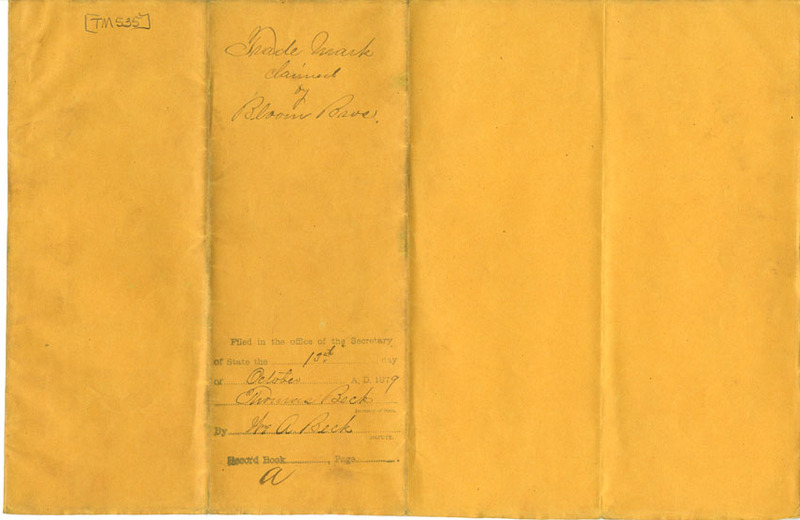 [TM535]
Trade Mark
claimed
of
Bloom Bros.
Filed in the office of the Secretary
of State the 13th day
of October A. D. 1879
Thomas Beck
Secretary of State.
By Wm A. Beck
DEPUTY.
Record Book , Page .
A